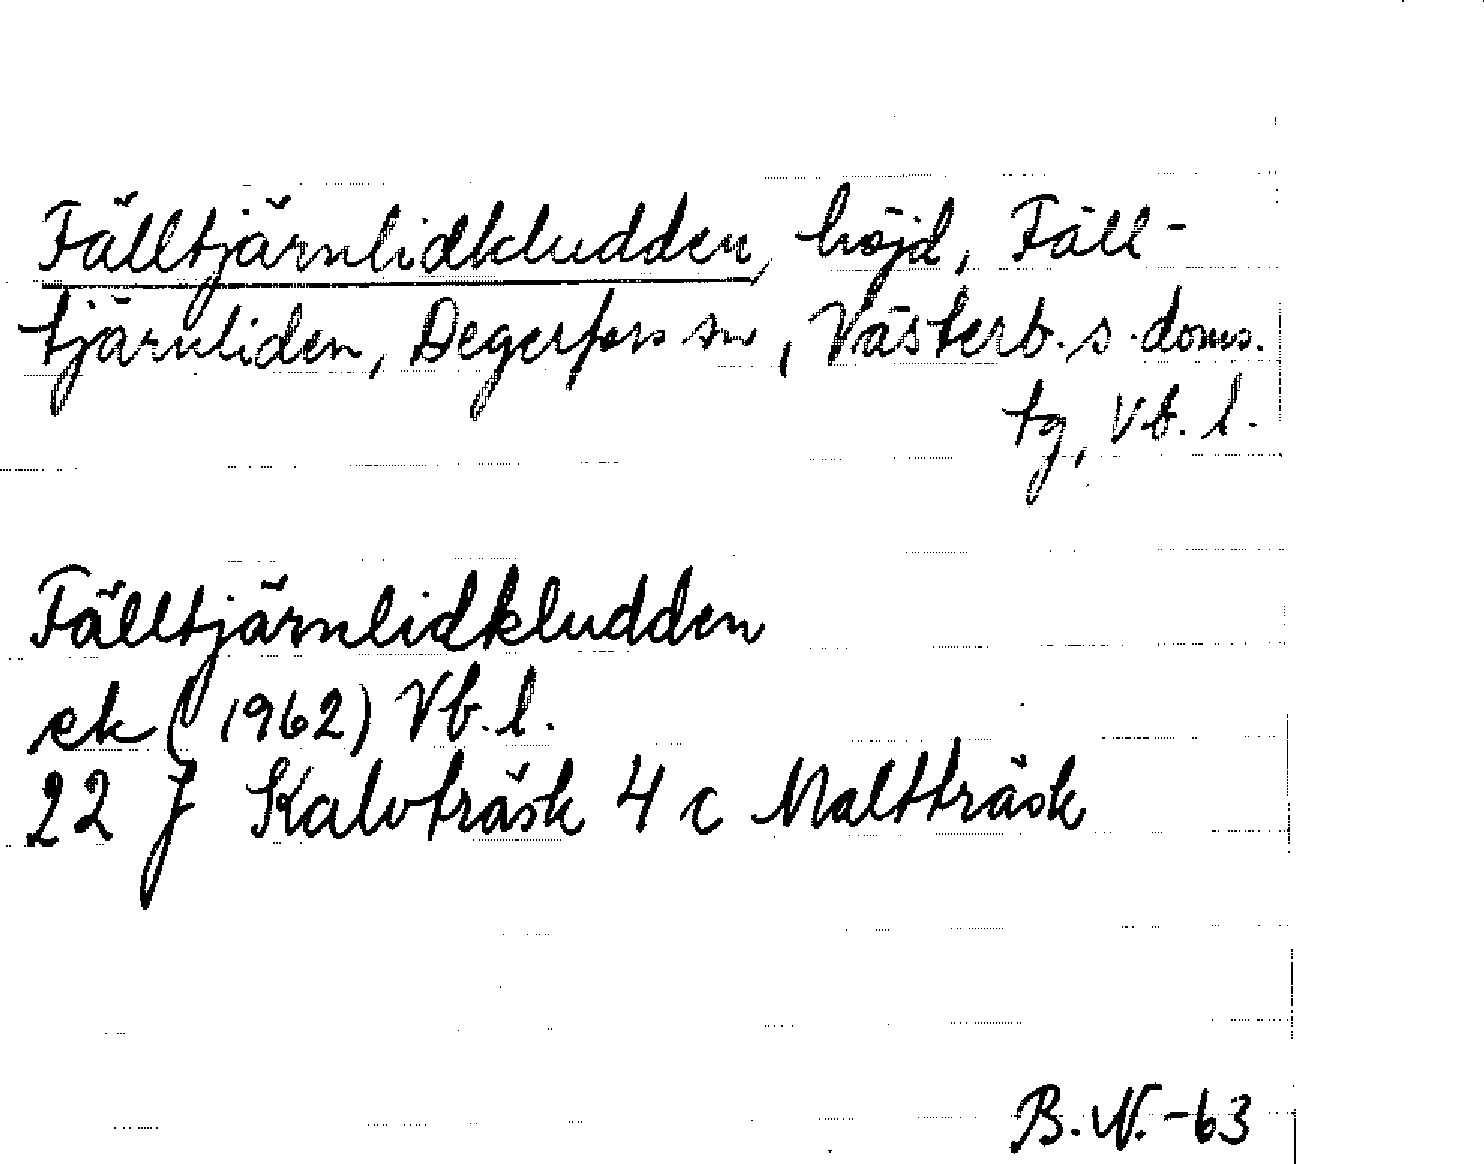 Fälltjärnlidkludden, höjd, Fäll-
tjärnliden, Degerfors sn, Västerb. s. doms.
tg, Vb. l.
Fälltjärnlidkludden
ek (1962) Vb. l.
22 J Kalvträsk 4 c Maltträsk
B.N. -63